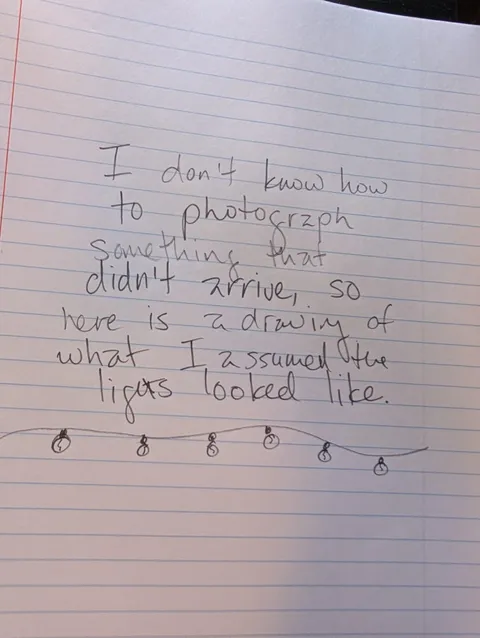 I don't know how
to photograph
something that
didn't arrive, so
here is a drawing of
what I assumed the
lights looked like.